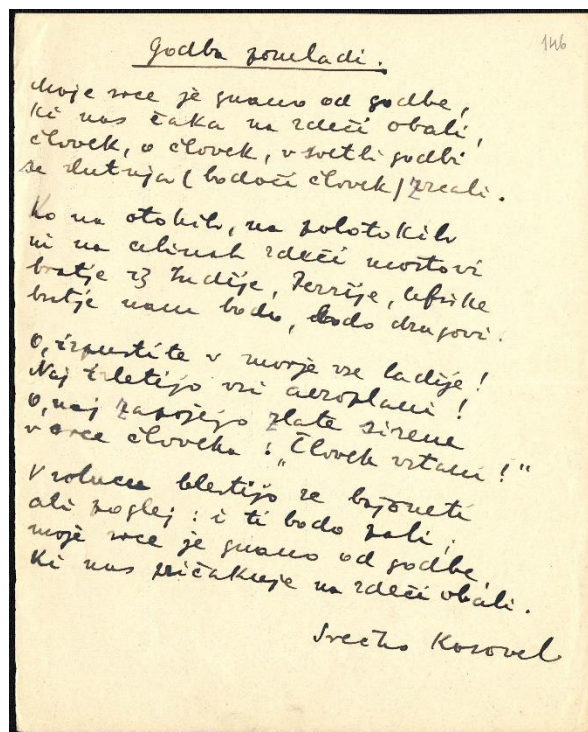 146
Godba pomladi.
Moje srce je gnano od godbe,
ki nas čaka na rdeči obali,
človek, o človek, v svetli godbi
se slutnja (bodoči človek) zrcali.
Ko na otokih, na polotokih
in na celinah rdeči mostovi
bratje iz Indije, Perzije, Afrike
bratje nam bodo, bodo drugovi.
O, izpustite v morje vse ladije!
Naj zletijo vsi aeroplani!
O, naj zapojejo zlate sirene
v srce človeka: "Človek vstani!"
V solncu blestijo se bajoneti
ali poglej: i ti bodo pali,
moje srce je gnano od godbe,
ki nas pričakuje na rdeči obali.
Srečko Kosovel